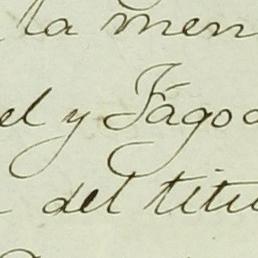 la men
el y Fágoa
del titu